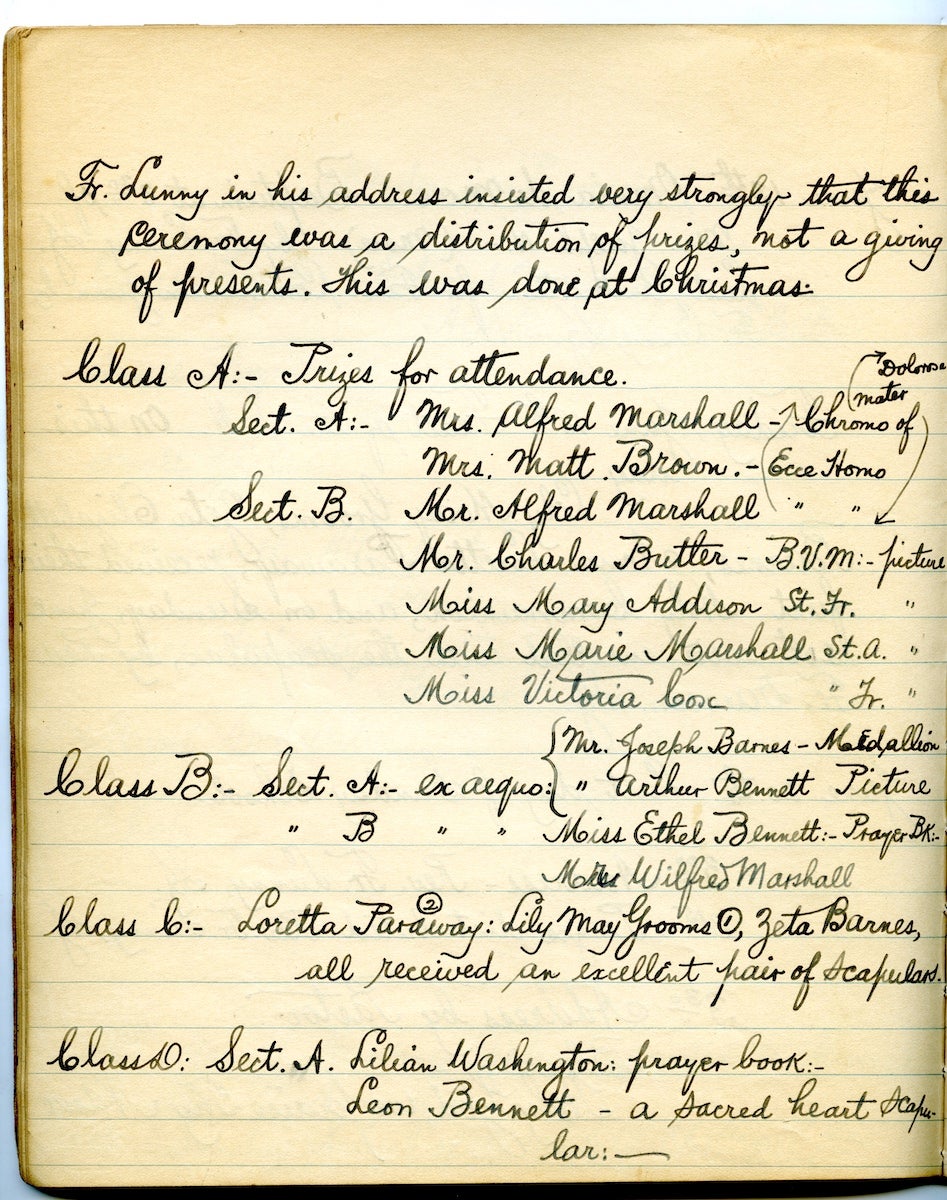 Fr. Lunny in his address insisted very strongly that this
ceremony was a distribution of prizes, not a giving
of presents. This was done at Christmas.
Class A:- Prizes for attendance.
Dolorosa
mater
Sect. A:- Mrs. Alfred Marshall - Chromo of
Mrs. Matt Brown. - Ecce Homo
Sect. B. Mr. Alfred Marshall " "
Mr. Charles Butler - B.V.M:- picture
Miss Mary Addison St. Fr. "
Miss Marie Marshall St. A. "
Miss Victoria Cox " Fr. "
Mr. Joseph Barnes - Medallion
Class B:- Sect. A:- ex aequo: " Arthur Bennett Picture
" B " " Miss Ethel Bennett:- Prayer Bk:-
Wilfred Marshall
Class C:- Loretta Paraway ②: Lily May Grooms ①, Zeta Barnes,
all received an excellent pair of scapulars.
Class D: Sect. A. Lilian Washington: prayer book:-
Leon Bennett - a sacred heart scapu-
lar:-